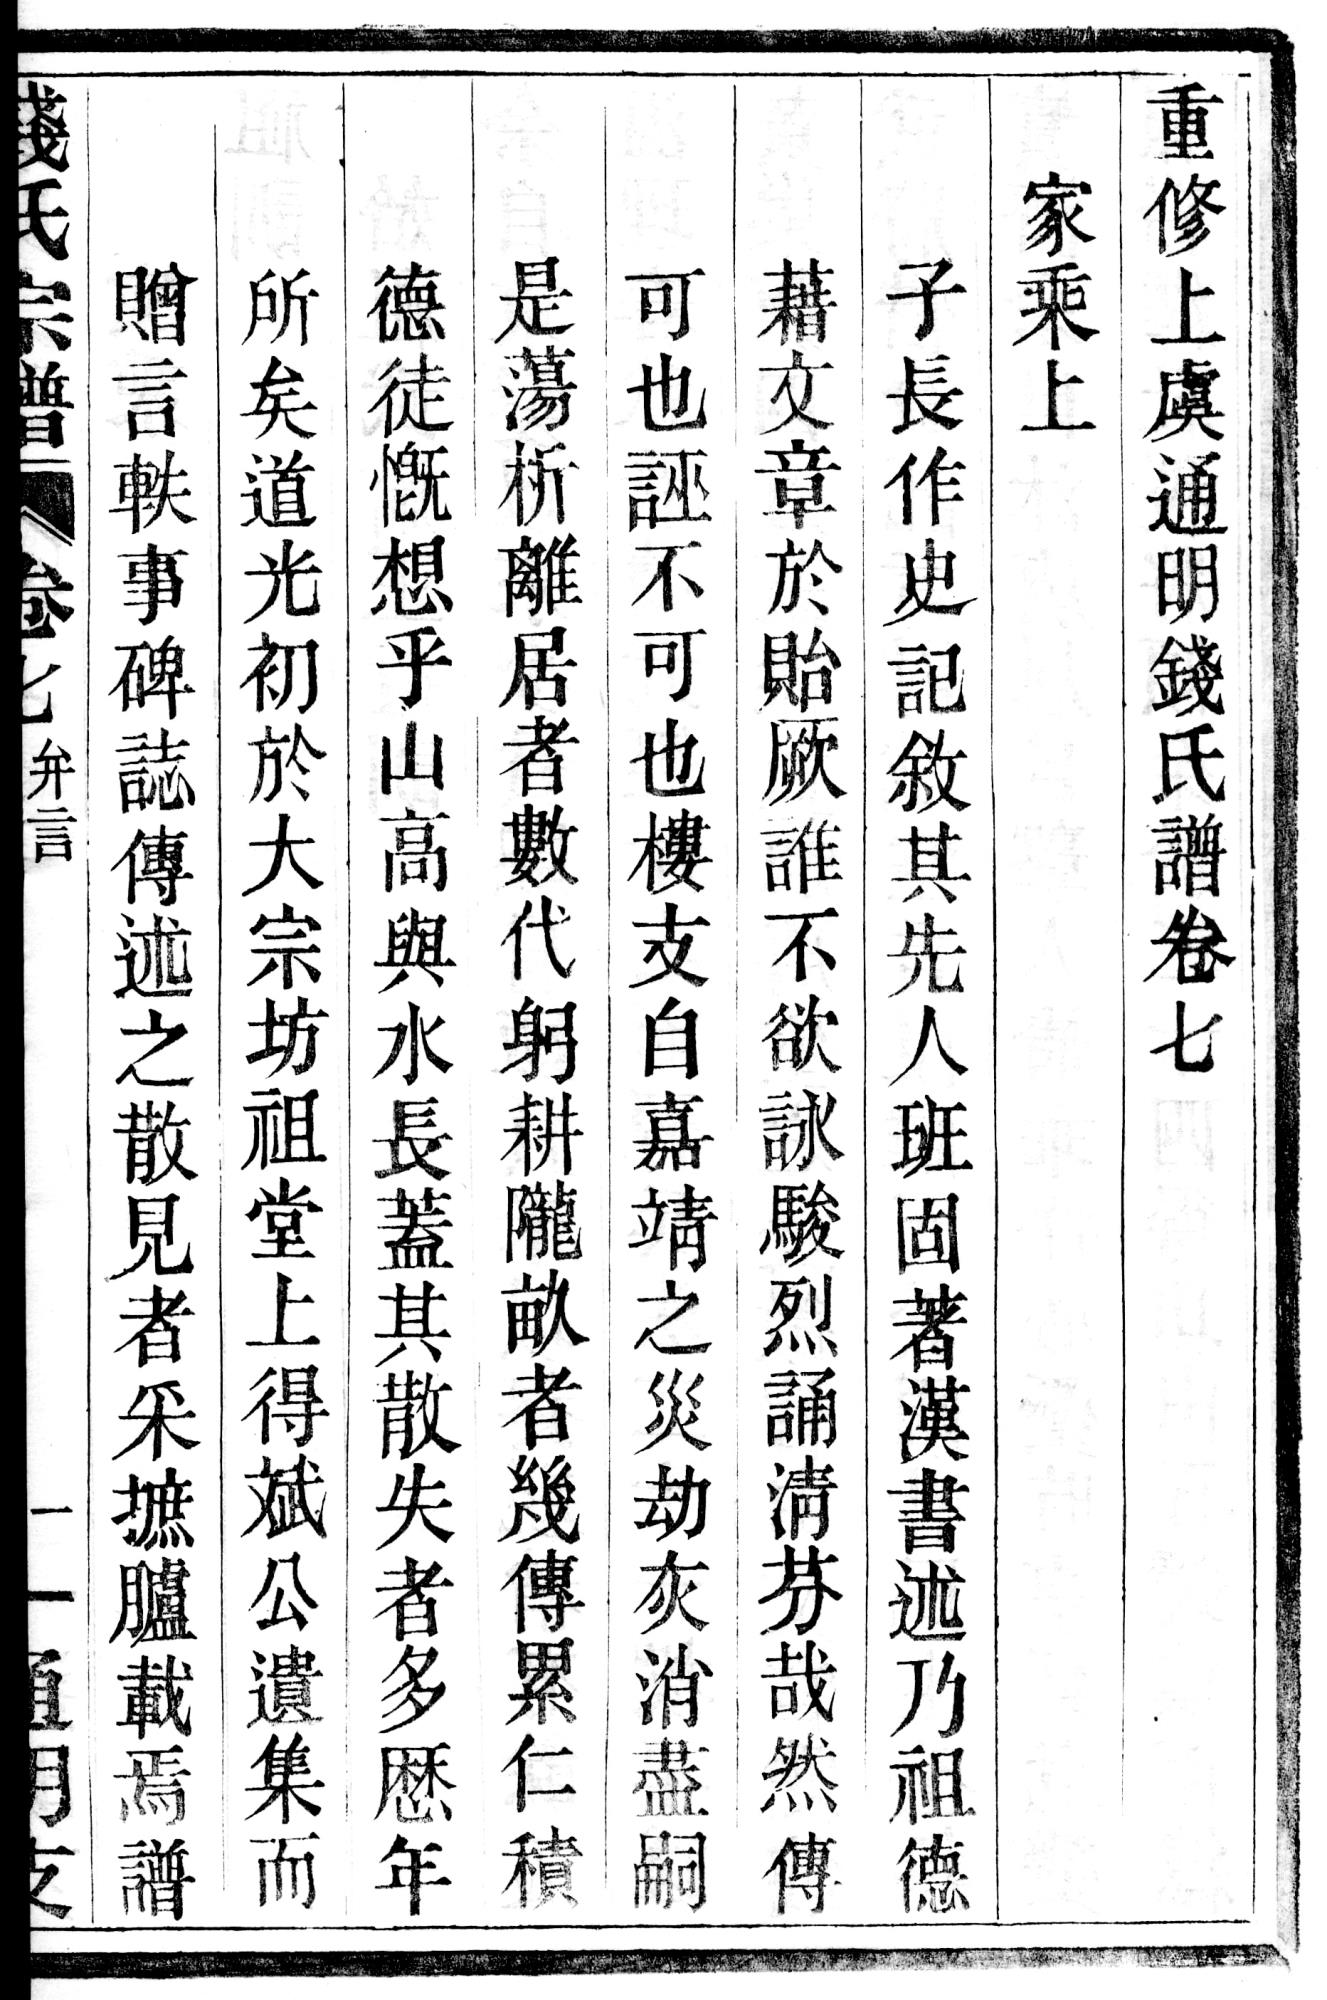 重修上虞通明錢氏譜卷七
家乘上
子長作史記敘其先人班固著漢書述乃祖德
藉文章於貽厥誰不欲詠駿烈誦淸芬哉然傳
可也誣不可也樓支自嘉靖之災劫灰消盡嗣
是蕩析離居者數代躬耕隴畝者幾傳累仁積
德徒慨想乎山高與水長蓋其散失者多歷年
所矣道光初於大宗坊祖堂上得斌公遺集而
贈言軼事碑誌傳述之散見者采摭臚載焉譜
錢氏宗譜 卷七 弁言 一 通明支